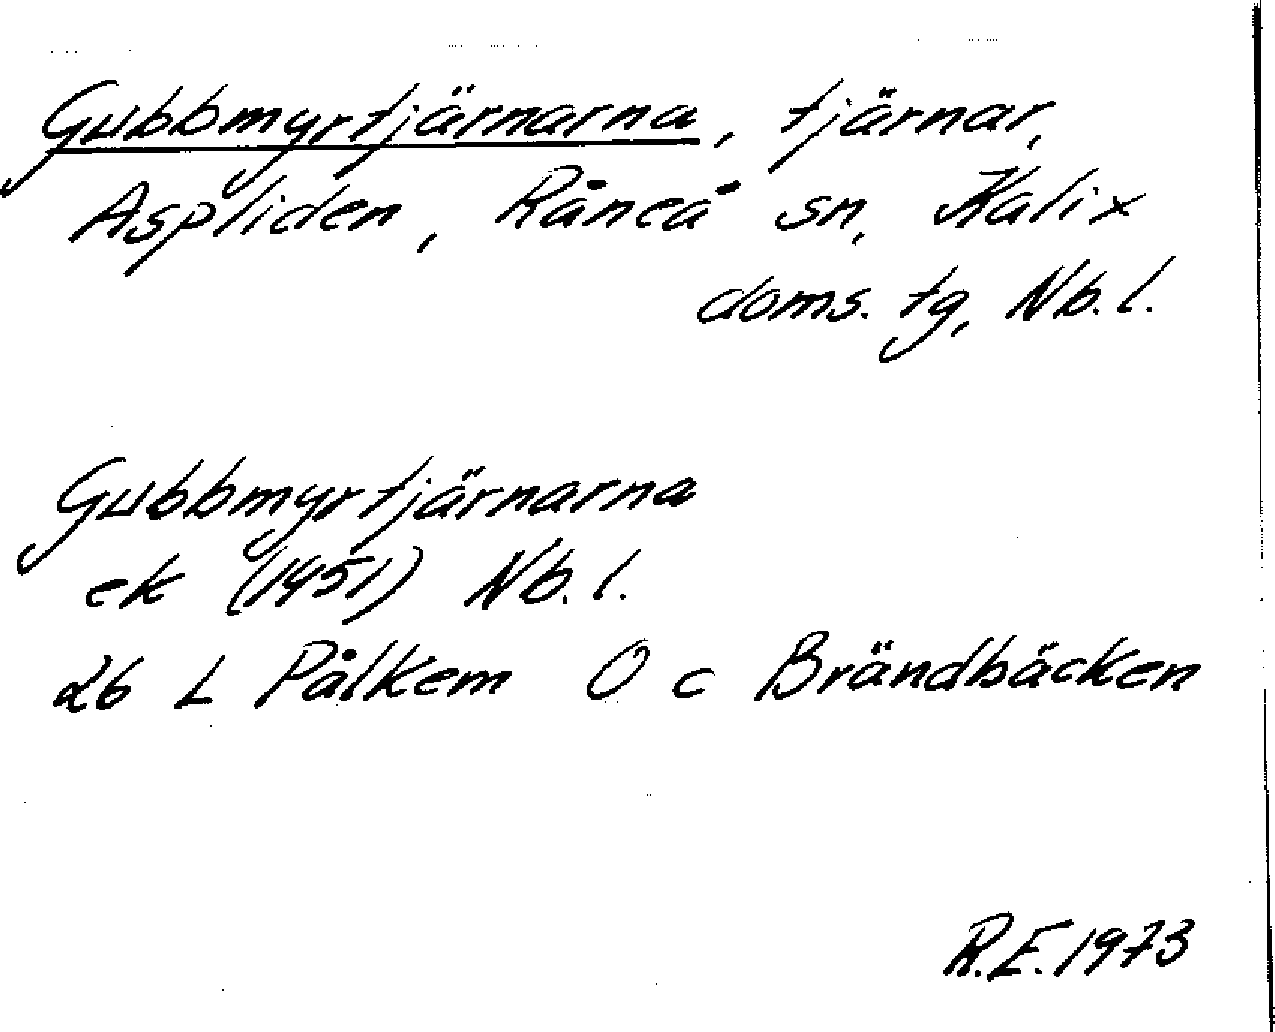 Gubbmyrtjärnarna, tjärnar,
Aspliden, Råneå sn, Kalix
doms. tg, Nb. l.
Gubbmyrtjärnarna
ek (1951) Nb. l.
26 L Pålkem O c Brändbäcken
R.E. 1973